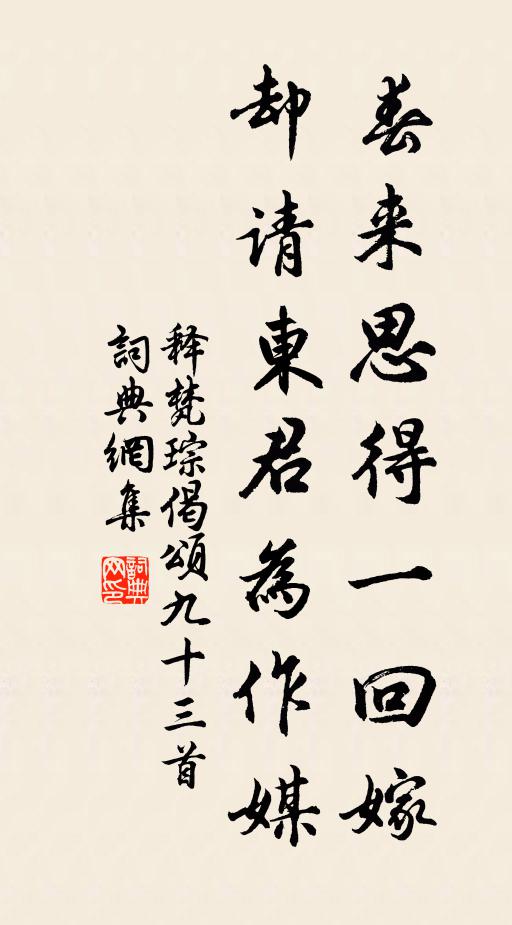 春来思得一回嫁
却请東君為作媒
释梵琮偈頌九十三首
詞典網集
詞典網印